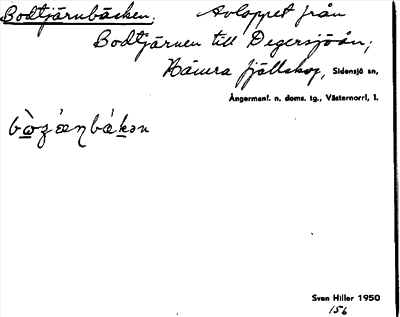 Bodtjärnbäcken; Avloppet från
Bodtjärnen till Degersjöån;
fjällskog, Sidensjö sn,
Ångermanl. n. doms. tg., Västernorrl. l.
Sven Hiller 1950
156